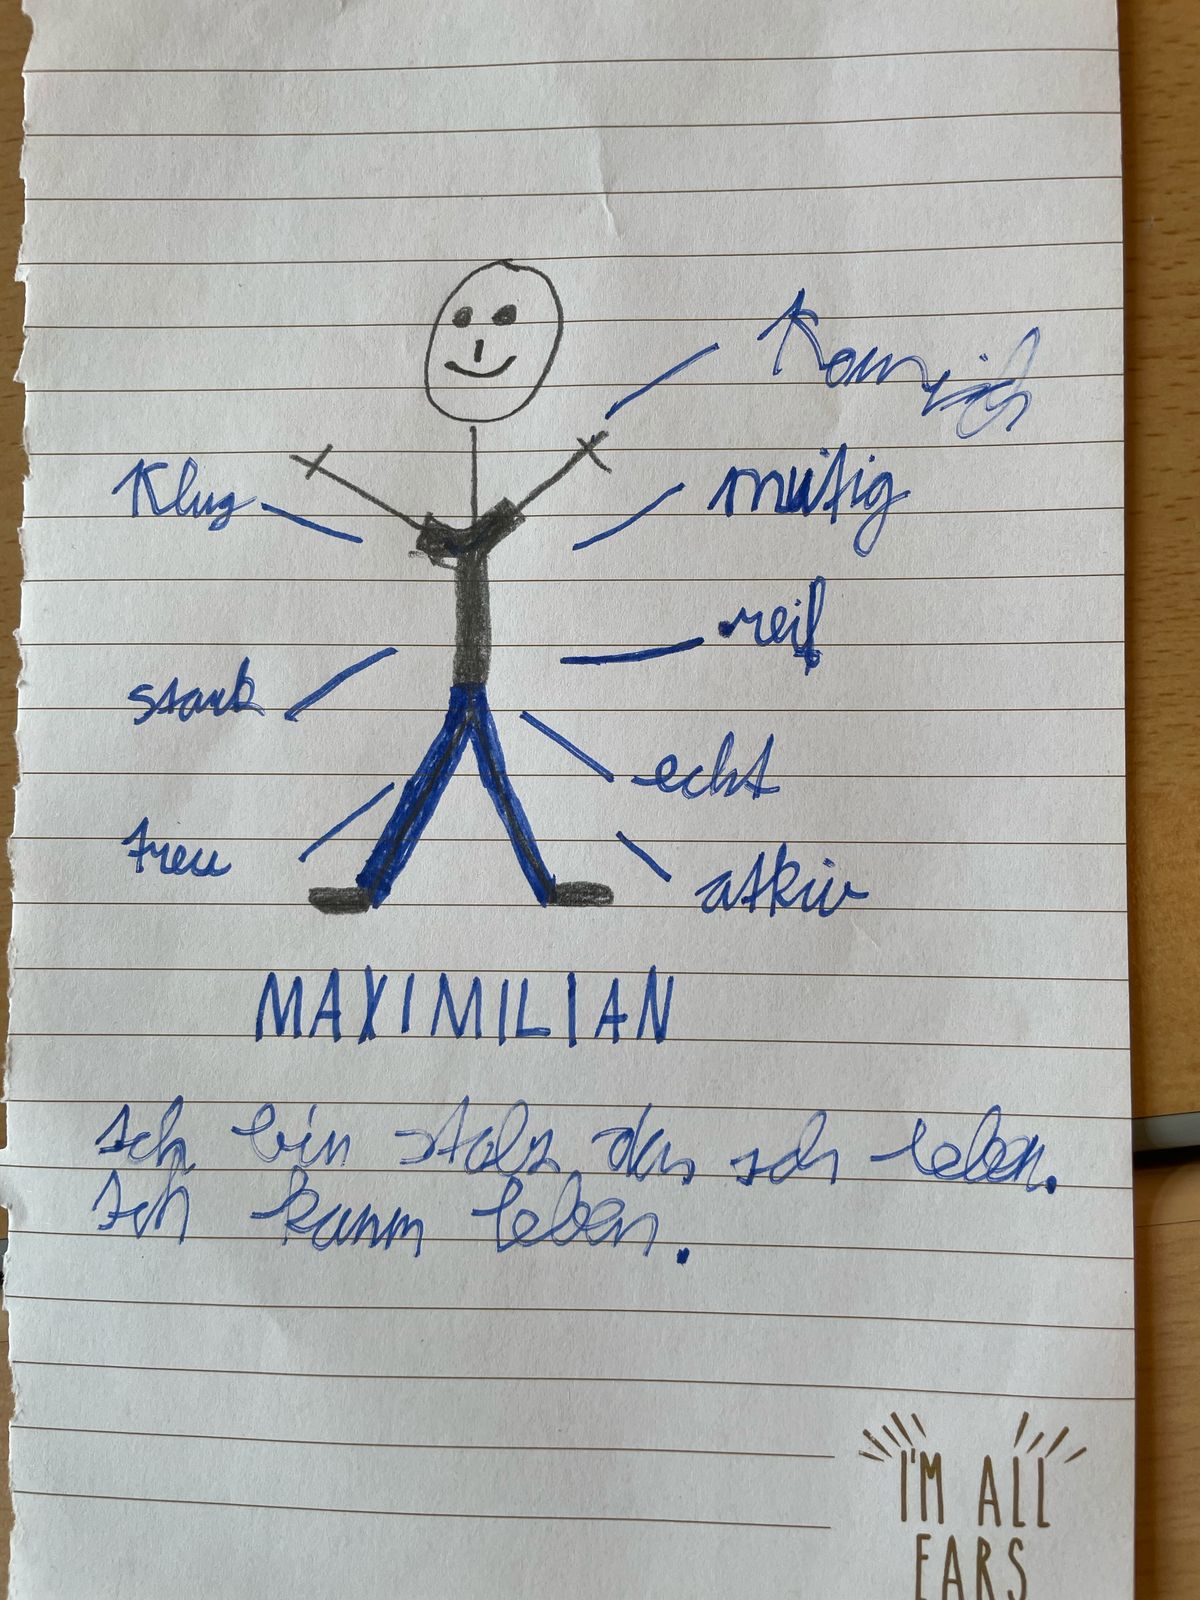 Komisch
Klug
mutig
reif
stark
echt
treu
atkiv
MAXIMILIAN
Ich bin stolz das ich leben.
Ich kann leben.
I'M ALL
EARS